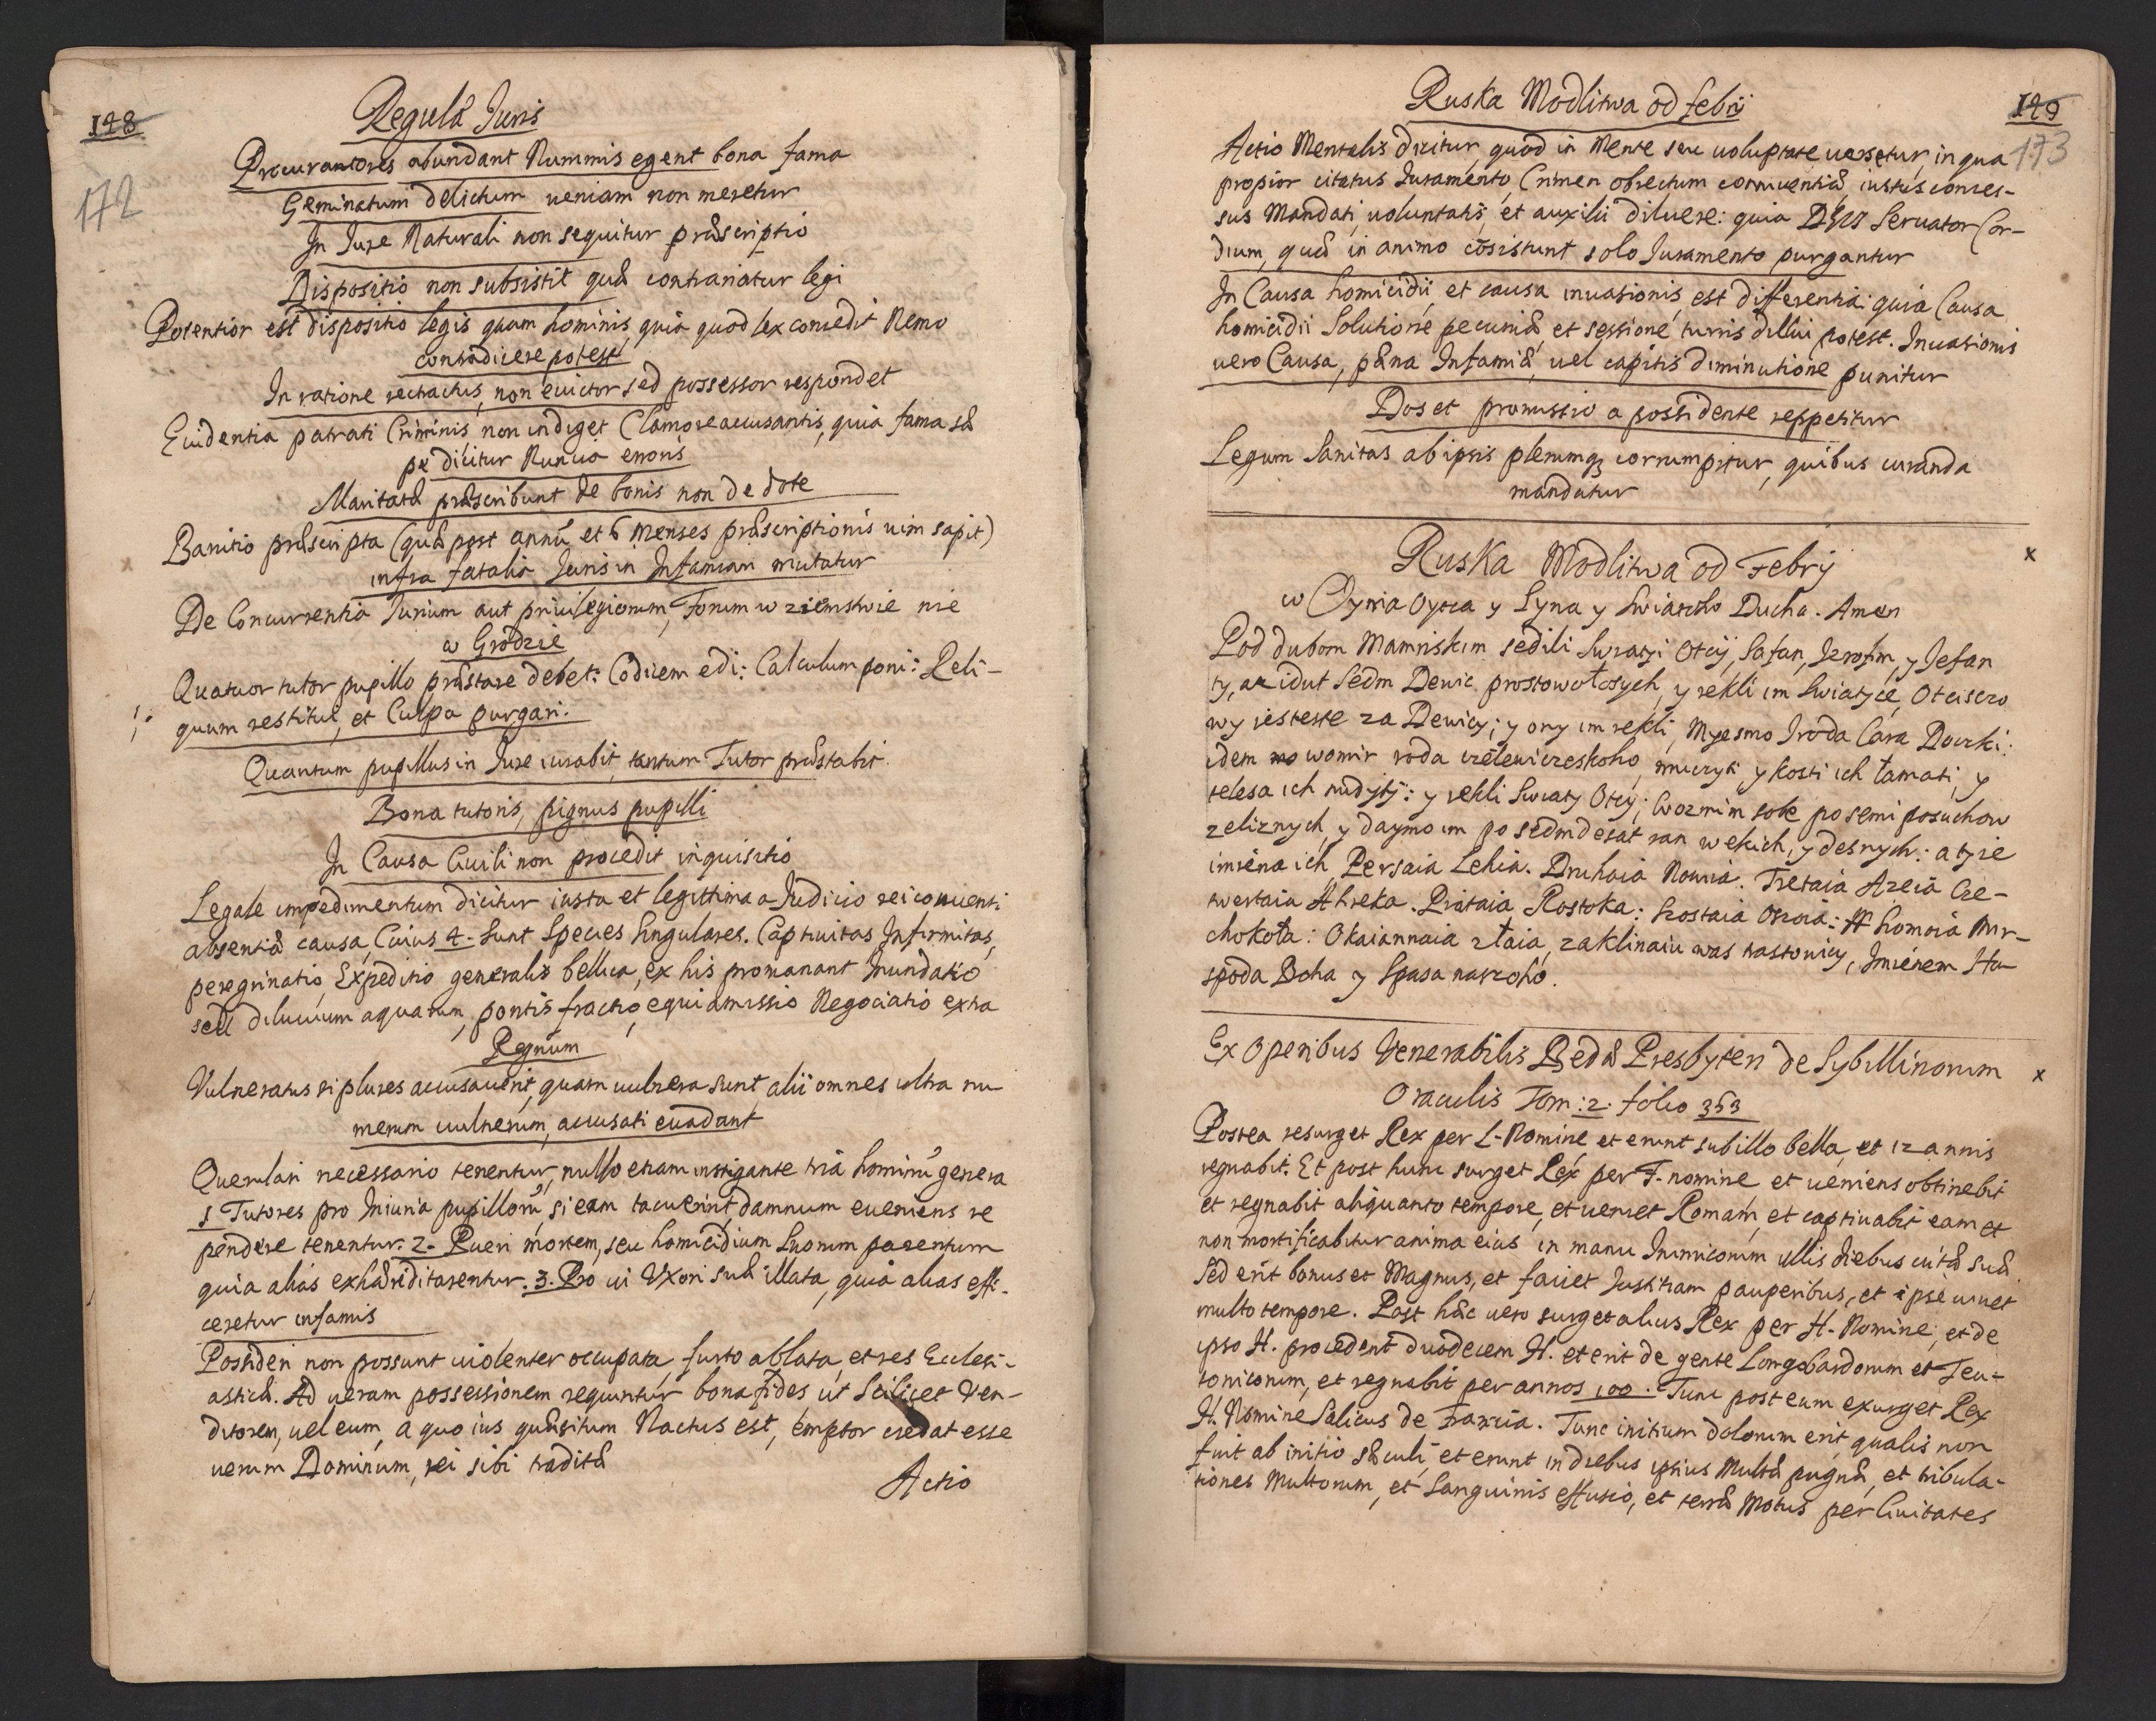 148
172
Regulæ Juris
Procuratores abundant Nummis egent bona fama
Geminatum delictum ueniam non meretur
In Jure Naturali non sequitur præscriptio
Dispositio non subsistit quæ contrariatur legi
Potentior est dispositio legis quam hominis, quia quod lex concedit Nemo
contradicere potest
In ratione rectactus, non euictor sed possessor respondet
Euidentia patrati Criminis, non indiget Clamore accusantis, quia fama sæ
pe dicitur Nuncia erroris
Maritatæ præscribunt de bonis non de dote
Banitio præscripta (quæ post annũ et 6 Menses præscriptionis uim sapit)
infra fatalia Juris in Infamiam mutatur
De Concurrentia Jurium aut priuilegiorum, Forum w ziemstwie nie
w Grodzie
Quatuor tutor pupillo præstare debet: Codicem edi: Calculum poni: Reli-
quum restitui, et Culpa purgari.
Quantum pupillus in Jure iurabit, tantum Tutor præstabit
Bona tutoris, pignus pupilli
In Causa Ciuili non procedit inquisitio
Legale impedimentum dicitur iusta et legittima a Judicio rei conuenti
absentiæ causa, Cuius 4. sunt Species Singulares. Captiuitas Infirmitas,
peregrinatio, Expeditio generalis bellica, ex his promanant Inundatio
seu diluuium aquarum, pontis fractio, equi amissio Negociatio extra
Regnum
Vulneratus si plures accusauerit, quam uulnera sunt, alii omnes ultra nu
merum uulnerum, accusati euadant
Querulari necessario tenentur, nullo etiam instigante tria hominũ genera
1 Tutores pro Iniuria pupillorũ, si eam tacuerint, damnum eueniens re
pendere tenentur. 2. Pueri mortem, seu homicidium Suorum parentum
quia alias exhæreditarentur. 3. Pro ui Vxori suæ illata, quia alias effi-
ceretur infamis
Possideri non possunt uiolenter occupata, furto ablata, et res Ecclesi-
asticæ. Ad ueram possessionem requiritur bona fides, ut Scilicet Ven-
ditorem, uel eum, a quo ius quæsitum Nactus est, emptor credat esse
uerum Dominum, rei sibi traditæ
Actio
Ruska Modlitwa od febry
149
173
Actio Mentalis dicitur, quod in Mente seu uoluptate uersetur, in qua
propior citatus Juramento, Crimen obiectum conniuentiæ iustus conces-
sus Mandati, uoluntatis, et auxilii diluere: quia Deus Seruator Cor-
dium, quæ in animo cõsistunt solo Juramento purgantur
In Causa homicidii, et causa inuasionis, est differentia: quia Causa
homicidii Solutione pecuniæ, et sessione turris dilui potest. Inuasionis
uero Causa, pæna Infamiæ, uel capitis diminutione punitur
Dos et promissio a possidente reppetitur
Legum Sanitas ab ipsis plerumq; corrumpitur, quibus curanda
mandatur
Ruska Modlitwa od Febry
x
w Oymia Oyca y Syna y Swiatoho Ducha. Amen
Pod dubom Mamriskim sedili Swiatyi Otcy, Safan, Jerofim, y Jefan
ty, az idut Sedm Dewic prostowołosych, y rekli im Swiatyie Otcisczo
wy iesteste za Dewicy; y ony im rekli, My esmo Iroda Cara Doczki:
idem wo womir roda czelewiczeskoho, muczyti, y kosti ich łamati, y
telesa ich nudyty: y rekli Swiaty Otcy; Wozmim sobe po semi posuchow
zeliznych, y daymo im po sedmdesat ran wekich, y desnych: a tyie
imiena ich, Persaia Lehia. Druhaia Nowia. Tretaia Azeia Cze-
twertaia Ahreka. Piataia Rostoka: Szostaia Oszoia: Homoia Mr-
chokota: Okaiannaia ztaia, zaklinaiu was nastowicy, Imienem Hu
spoda Boha y Spasa naszoho.
Ex Operibus Venerabilis Bedæ Presbyteri de Sybillinorum
x
Oraculis Tom: 2. folio 353
Postea resurget Rex per L-Nomine et erunt sub illo bella, et 12 annis
regnabit. Et post hunc surget Rex per F-nomine et ueniens obtinebit
et regnabit aliquanto tempore, et ueniet Romam, et captiuabit eam et
non mortificabitur anima eius in manu Inimicorum ullis diebus uitæ suæ
Sed erit bonus et Magnus, et faciet Justitiam pauperibus, et ipse uiuet
multo tempore. Post hæc uero surget alius Rex per H-Nomine, et de
ipso H. procedent duodecem H. et erit de gente Longobardorum et Teu-
tonicorum, et regnabit per annos 100. Tunc post eum exurget Rex
H. Nomine Salicus de Francia. Tunc initium dolorum erit, qualis non
fuit ab initio sæculi, et erunt in diebus ipsius Multæ pugnæ, et tribula-
tiones Multorum, et Sanguinis effusio, et terræ Motus per Ciuitates